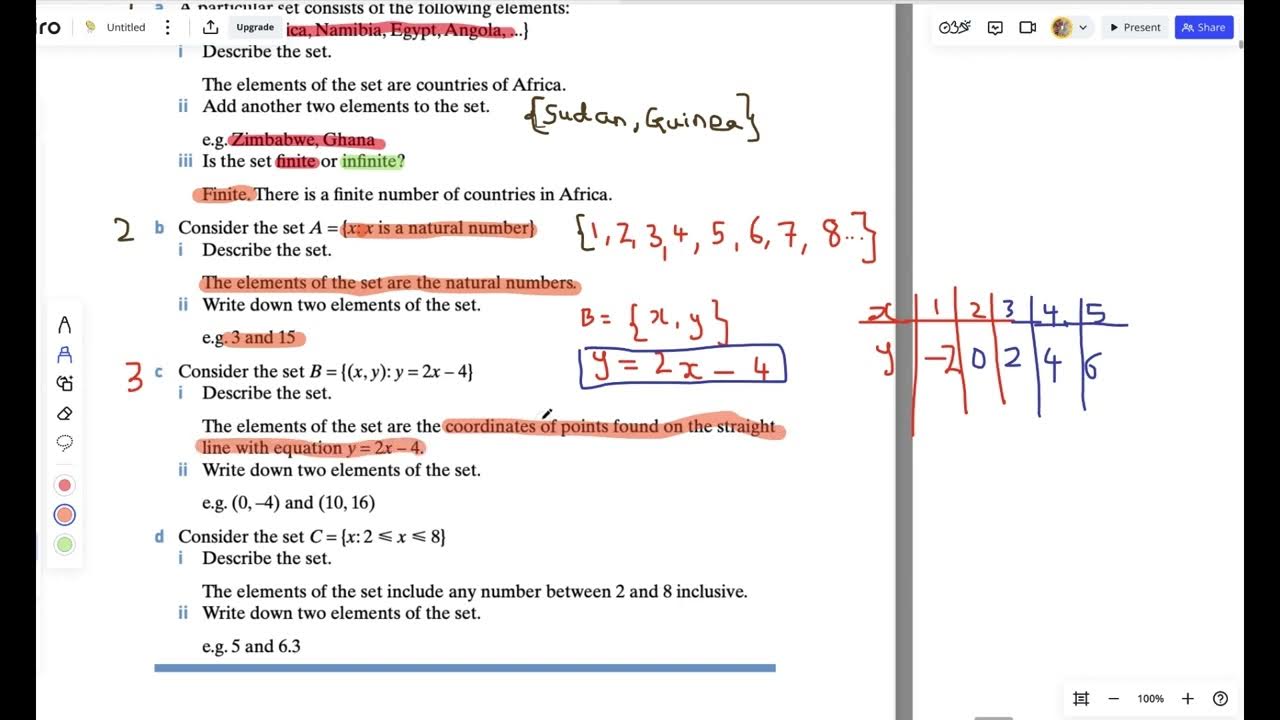 a A particular set consists of the following elements:
iro Untitled Upgrade ica, Namibia, Egypt, Angola, ...} Present Share
i Describe the set.
The elements of the set are countries of Africa.
ii Add another two elements to the set.
{Sudan, Guinea}
e.g. Zimbabwe, Ghana
iii Is the set finite or infinite?
Finite. There is a finite number of countries in Africa.
2 b Consider the set A = {x: x is a natural number} {1, 2, 3, 4, 5, 6, 7, 8...}
i Describe the set.
The elements of the set are the natural numbers.
ii Write down two elements of the set.
x 1 2 3 4 5
B = {x, y}
e.g. 3 and 15
y = 2x - 4
y -2 0 2 4 6
3 c Consider the set B = {(x, y): y = 2x – 4}
i Describe the set.
The elements of the set are the coordinates of points found on the straight
line with equation y = 2x – 4.
ii Write down two elements of the set.
e.g. (0, –4) and (10, 16)
d Consider the set C = {x: 2 ⩽ x ⩽ 8}
i Describe the set.
The elements of the set include any number between 2 and 8 inclusive.
ii Write down two elements of the set.
e.g. 5 and 6.3
100%